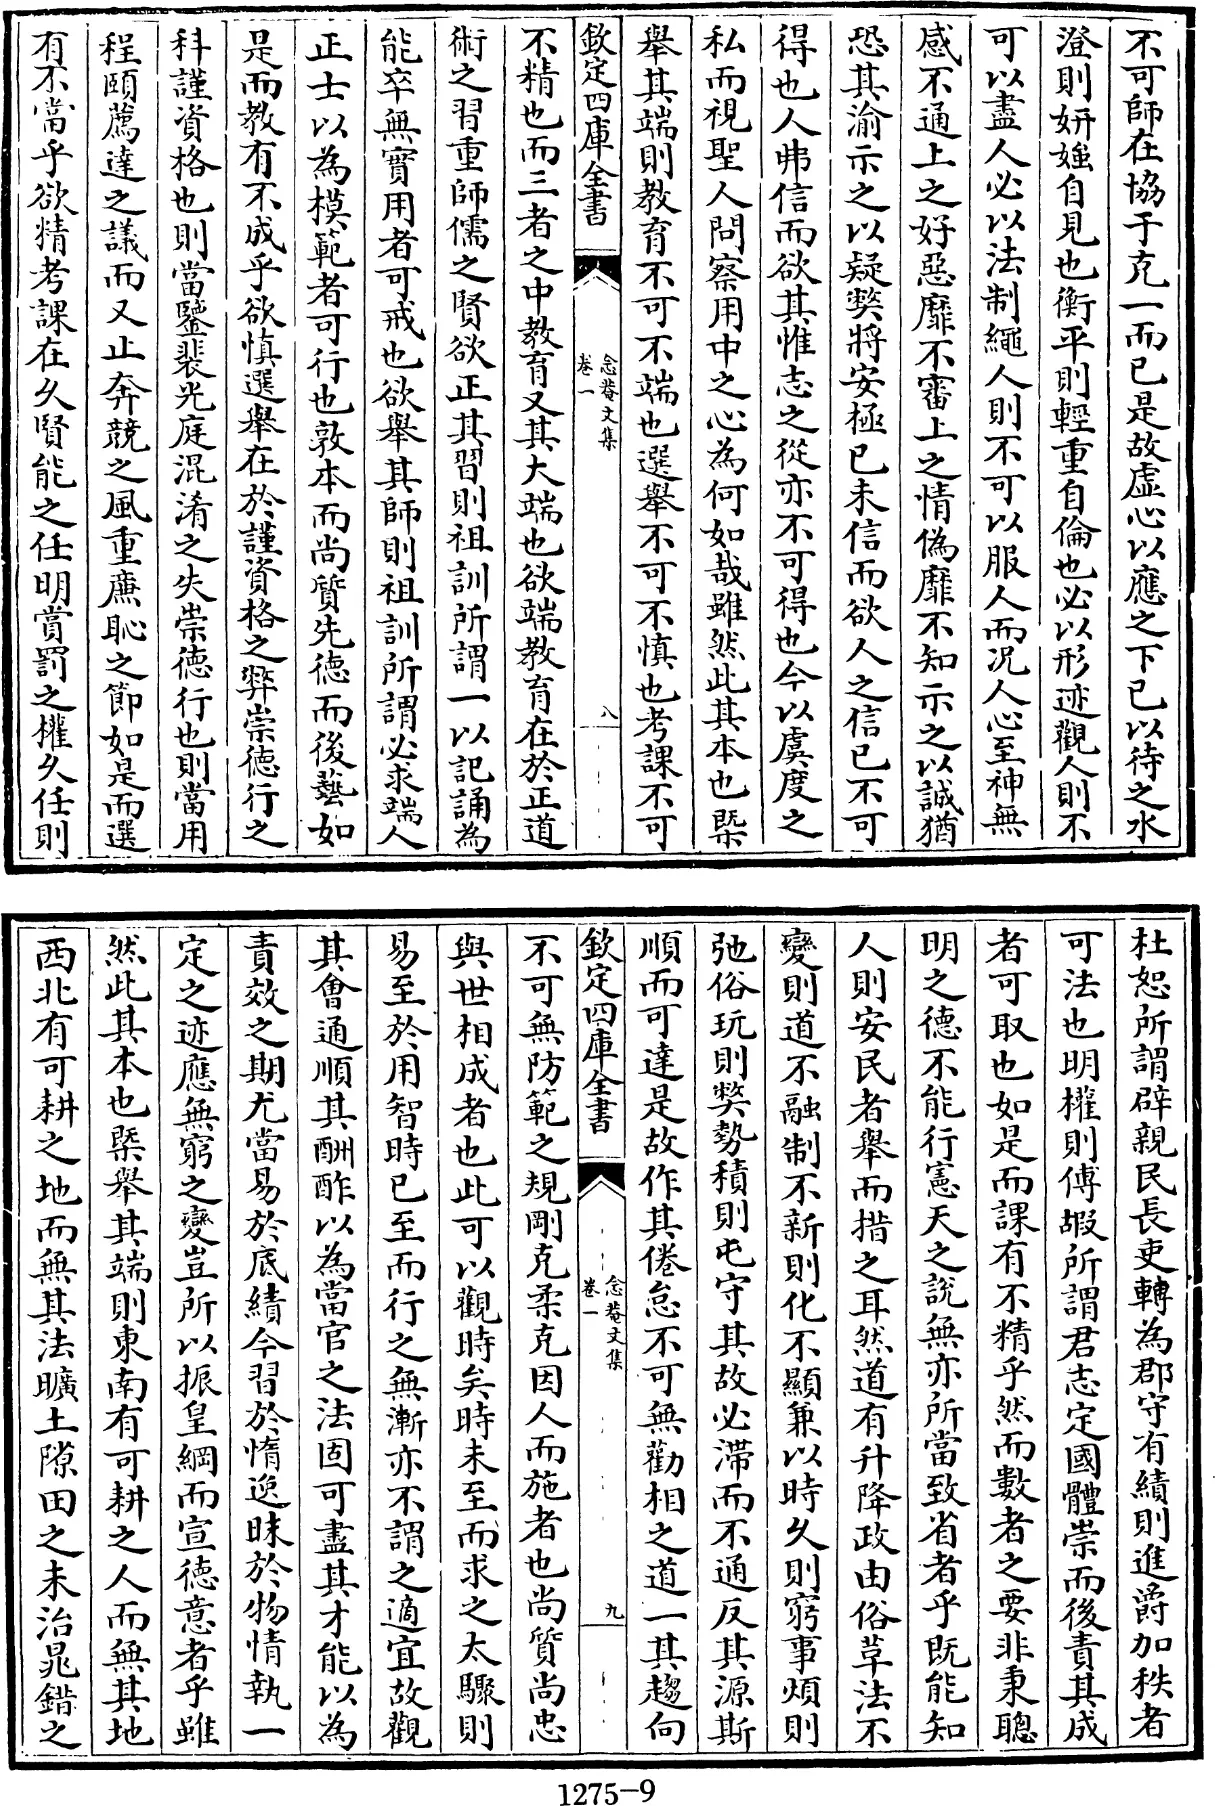 不可師在協于克一而已是故虚心以應之下已以待之水
澄則妍媸自見也衡平則輕重自倫也必以形迹觀人則不
可以盡人必以法制繩人則不可以服人而况人心至神無
感不通上之好惡靡不審上之情偽靡不知示之以誠猶
恐其渝示之以疑獘將安極已未信而欲人之信已不可
得也人弗信而欲其惟志之從亦不可得也今以虞度之
私而視聖人問察用中之心為何如哉雖然此其本也槩
舉其端則教育不可不端也選舉不可不慎也考課不可
欽定四庫全書
念菴文集
卷一
八
不精也而三者之中教育又其大端也欲端教育在於正道
術之習重師儒之賢欲正其習則祖訓所謂一以記誦為
能卒無實用者可戒也欲舉其師則祖訓所謂必求端人
正士以為模範者可行也敦本而尚質先德而後藝如
是而教有不成乎欲慎選舉在於謹資格之弊崇德行之
科謹資格也則當鑒裴光庭混淆之失崇德行也則當用
程頤薦達之議而又止奔競之風重亷恥之節如是而選
有不當乎欲精考課在久賢能之任明賞罰之權久任則
杜恕所謂辟親民長吏轉為郡守有績則進爵加秩者
可法也明權則傅嘏所謂君志定國體崇而後責其成
者可取也如是而課有不精乎然而數者之要非秉聰
明之德不能行憲天之說無亦所當致省者乎既能知
人則安民者舉而措之耳然道有升降政由俗革法不
變則道不融制不新則化不顯兼以時久則窮事煩則
弛俗玩則獘勢積則屯守其故必滯而不通反其源斯
順而可達是故作其倦怠不可無勸相之道一其趨向
欽定四庫全書
念菴文集
卷一
九
不可無防範之規剛克柔克因人而施者也尚質尚忠
與世相成者也此可以觀時矣時未至而求之太驟則
易至於用智時已至而行之無漸亦不謂之適宜故觀
其會通順其酬酢以為當官之法固可盡其才能以為
責效之期尤當易於底績今習於惰逸昧於物情執一
定之迹應無窮之變豈所以振皇綱而宣德意者乎雖
然此其本也槩舉其端則東南有可耕之人而無其地
西北有可耕之地而無其法曠土隙田之未治晁錯之
1275-9